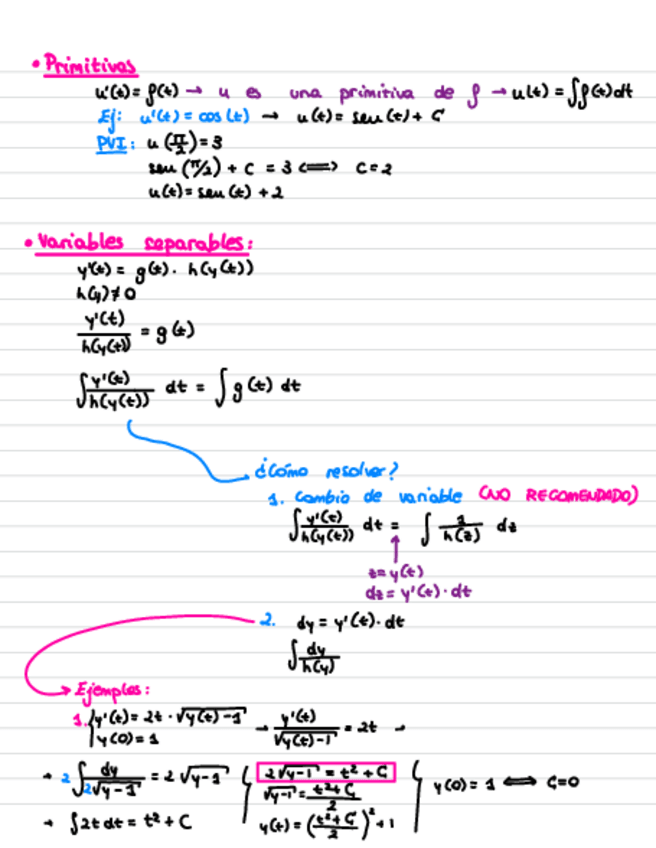 • Primitivas
u'(t) = f(t) → u es una primitiva de f → u(t) = ∫f(t)dt
Ej: u'(t) = cos(t) → u(t) = sen(t) + C
PVI: u(π/2) = 3
sen(π/2) + C = 3 ⟺ C = 2
u(t) = sen(t) + 2
• Variables separables:
y'(t) = g(t) · h(y(t))
h(y) ≠ 0
y'(t)/h(y(t)) = g(t)
∫ y'(t)/h(y(t)) dt = ∫ g(t) dt
¿Cómo resolver?
1. Cambio de variable (NO RECOMENDADO)
∫ y'(t)/h(y(t)) dt = ∫ 1/h(z) dz
z = y(t)
dz = y'(t) · dt
2. dy = y'(t) · dt
∫ dy/h(y)
→ Ejemplos:
1. { y'(t) = 2t · √(y(t)-1) → y'(t)/√(y(t)-1) = 2t →
y(0) = 1
→ 2∫ dy/2√(y-1) = 2√(y-1) { 2√(y-1) = t² + C { y(0) = 1 ⟺ C = 0
√(y-1) = (t² + C)/2
→ ∫2t dt = t² + C y(t) = ((t² + C)/2)² + 1